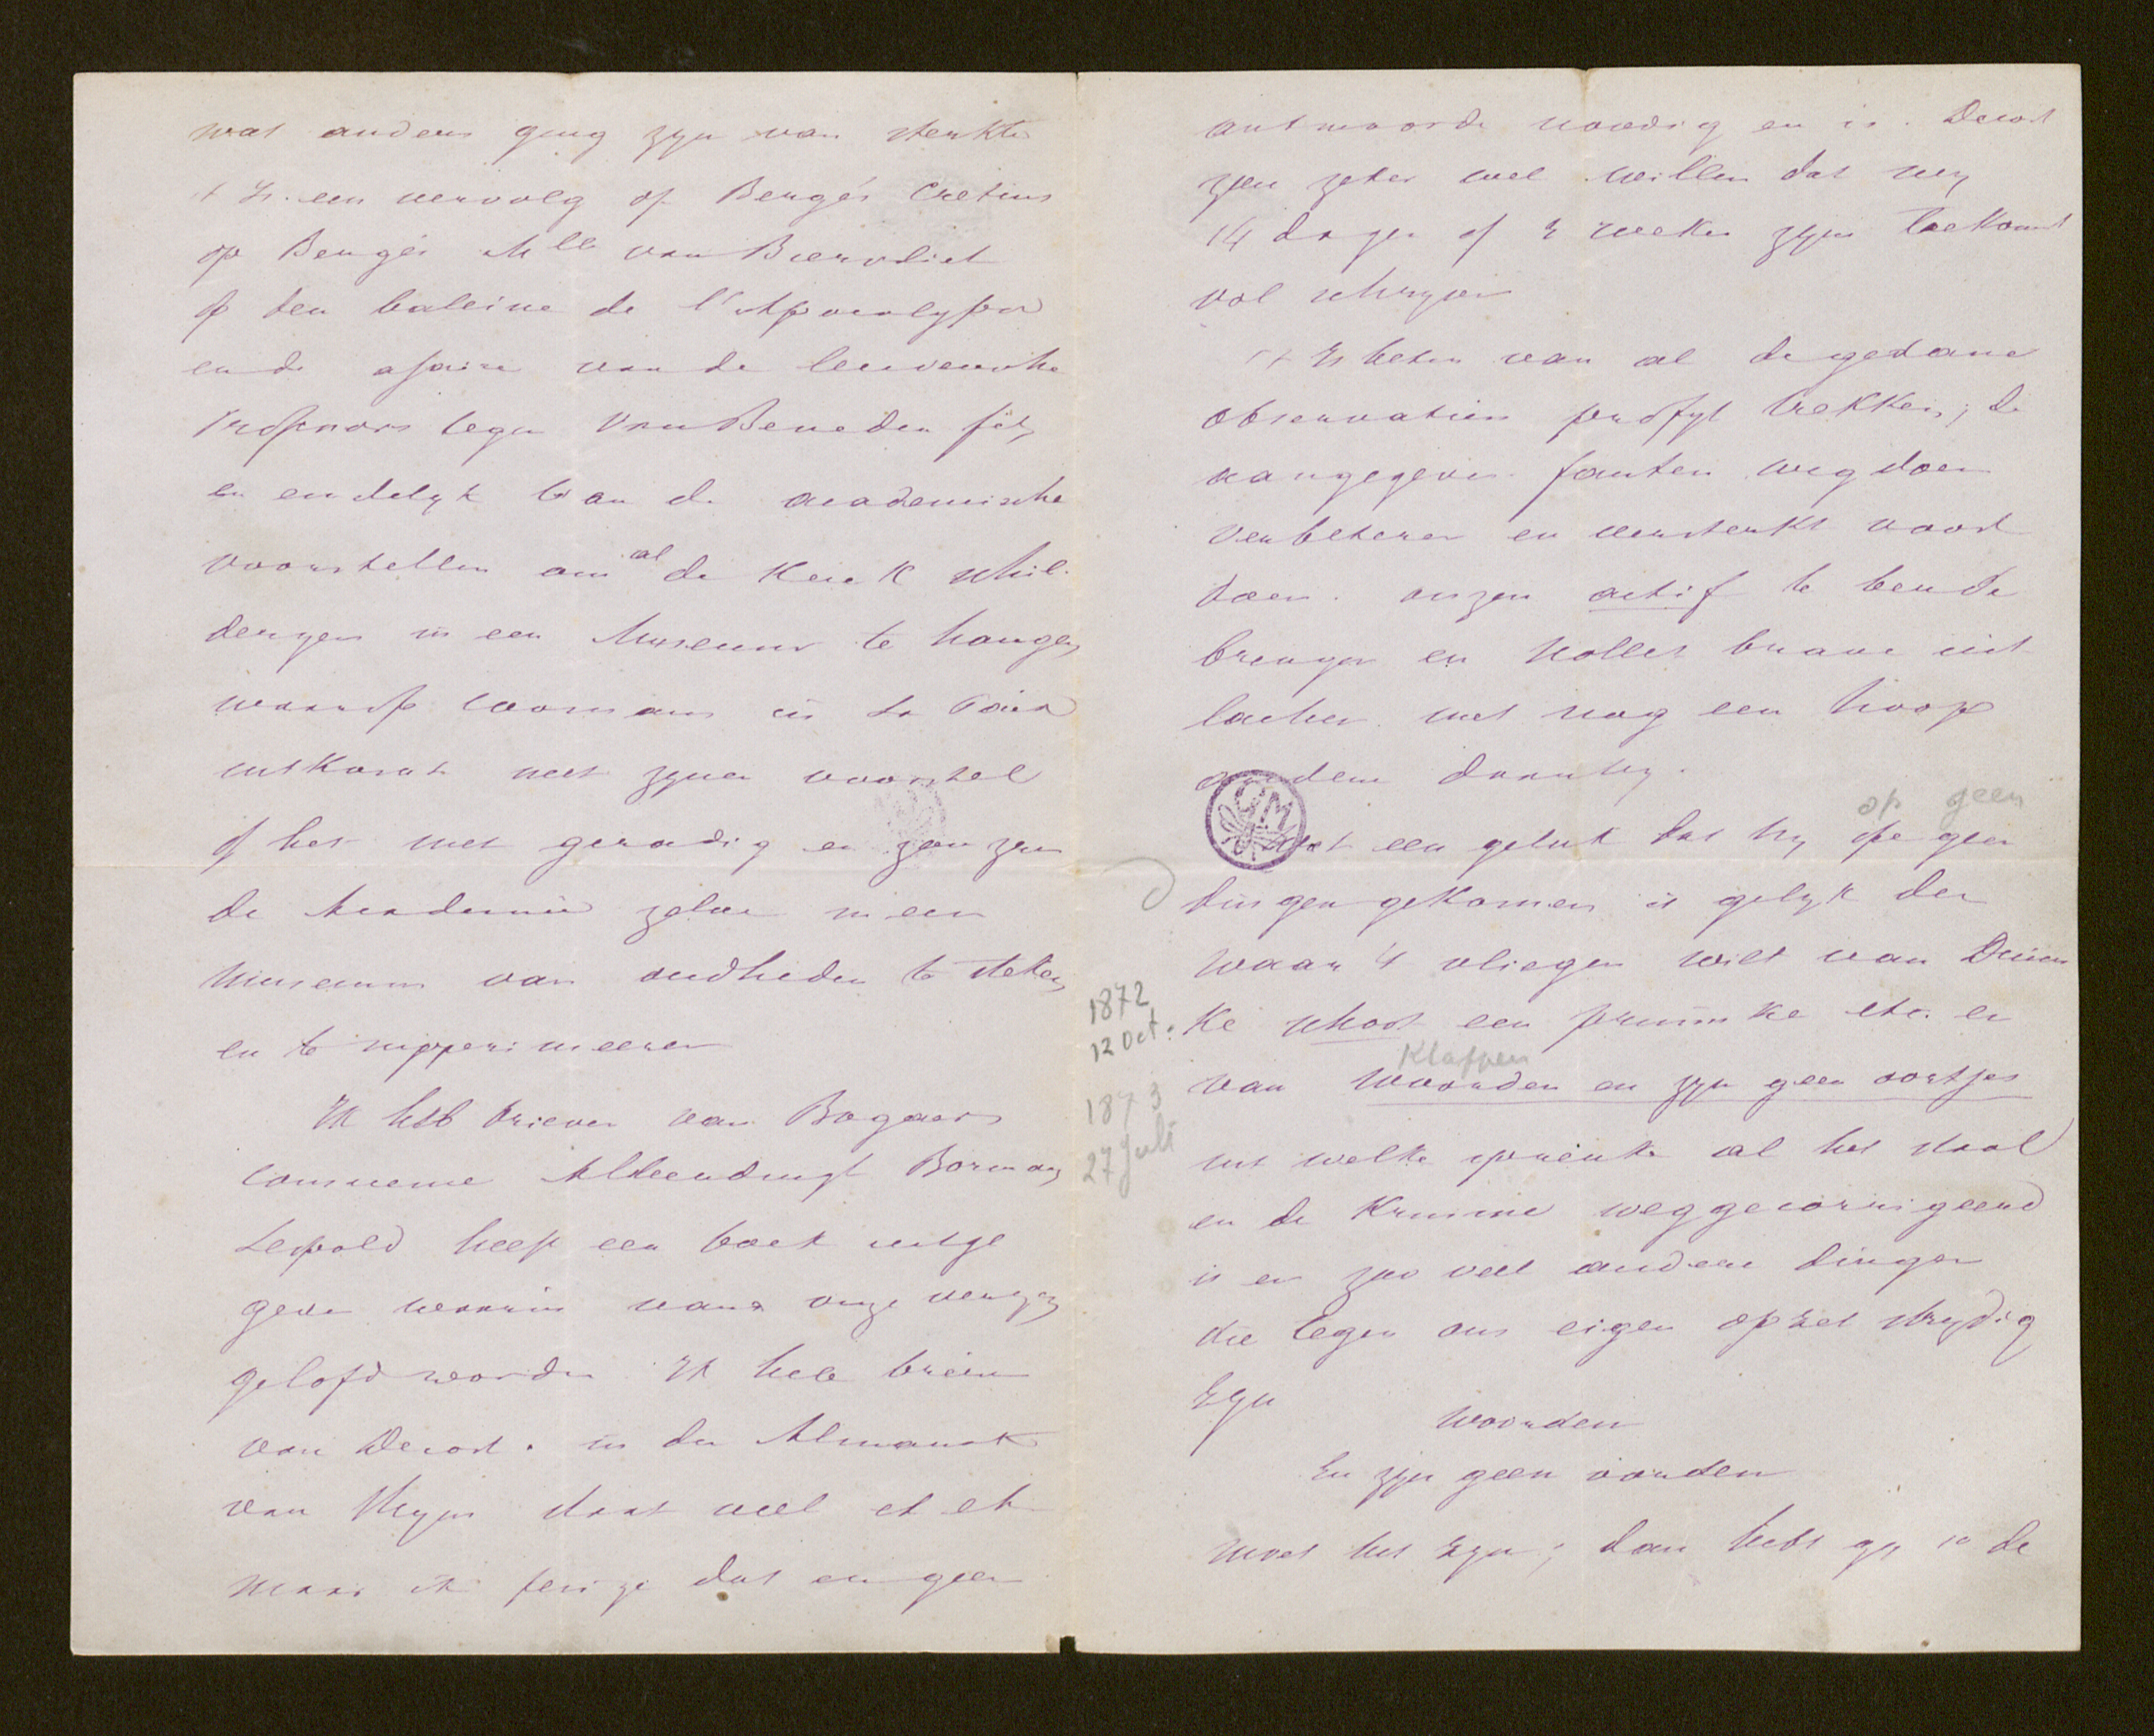 wat anders ging zyn van sterkte
't Is een vervolg op Bergés Cretins
op Bergés Mlle van Biervliet
op den baleine de l'Apocalypse
en de afaire van de leuvensche
Professors tegen Van Beneden fils,
en endelyk van de academische
voorstellen om al de Kerk schil-
deryen in een Museum te hangen
waarop Coomans in La Paix
uitkomt met zynen voorstel
of het niet geradig en zou zyn
de Academie zelve in een
Museum van oudheden te steken
en te supprimeeren
Ik heb brieven van Bogaers
Comneme Alberdingk Bormans
Leopold heeft een boek uitge
geven waarin van onze verzen
gelofd worden Ik heb brieven
van Decort. in den Almanak
van Snyers staat veel et etc
maar ik peize dat er geen
antwoorde noodig en is. Decort
zou zeker wel willen dat wy
14 dagen of 3 weken zyne Toekomst
vol schryven
't Is beter van al de gedane
observatien profyt trekken; de
aangegeven fauten weg doen
verbeteren en versterkt voort
doen. onzen actif te bende
brengen en Nolets brave uit
lachen met nog een hoop
anderen daerby.
op geen
Wat een geluk dat hy op geen
dingen gekomen is gelyk der
waar 't vliegen wilt van Duim
ke schoot een pruimke etc. en
Klappen
van Woorden en zyn geen oortjes
uit welke spreuke al het staal
en de Kruime weggecorrigeerd
is en zoo veel andere dingen
die tegen ons eigen opzet strydig
Zyn
Woorden
En zyn geen oorden
moet het zyn; dan hebt gy 1° de
1872
12 Oct:
1873
27 Juli
GM